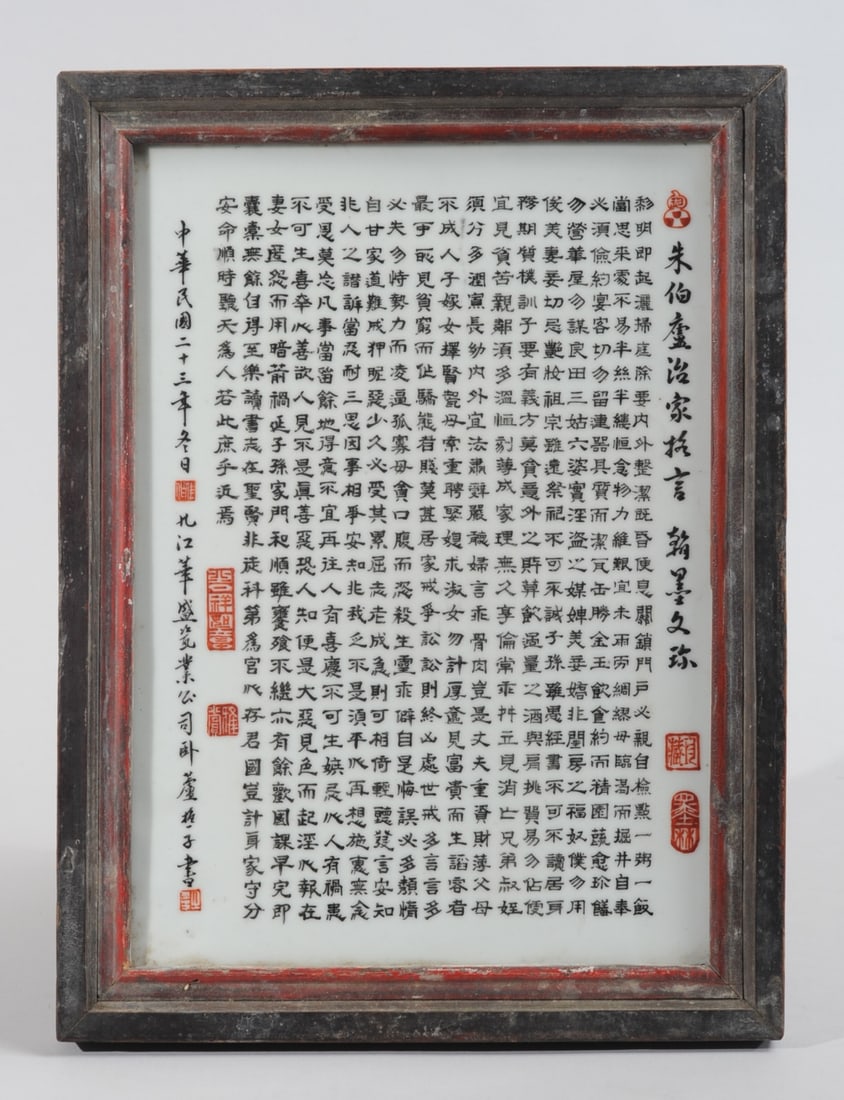 朱伯廬治家格言 翰墨文珍
黎明即起灑掃庭除要內外整潔既昏便息關鎖門戶必親自檢點一粥一飯
當思來處不易半絲半縷恒念物力維艱宜未雨而綢繆毋臨渴而掘井自奉
必須儉約宴客切勿留連器具質而潔瓦缶勝金玉飲食約而精園蔬愈珍饈
勿營華屋勿謀良田三姑六婆實淫盜之媒婢美妾嬌非閨房之福奴僕勿用
俊美妻妾切忌艷妝祖宗雖遠祭祀不可不誠子孫雖愚經書不可不讀居身
務期質樸訓子要有義方莫貪意外之財莫飲過量之酒與肩挑貿易勿佔便
宜見貧苦親鄰須多溫恤刻薄成家理無久享倫常乖舛立見消亡兄弟叔姪
須分多潤寡長幼內外宜法肅辭嚴聽婦言乖骨肉豈是丈夫重資財薄父母
不成人子嫁女擇賢壻毋索重聘娶媳求淑女勿計厚奩見富貴而生諂容者
最可恥見貧窮而作驕態者賤莫甚居家戒爭訟訟則終凶處世戒多言言多
必失勿恃勢力而凌逼孤寡毋貪口腹而恣殺生靈乖僻自是悔誤必多頹惰
自甘家道難成狎昵惡少久必受其累屈志老成急則可相倚輕聽發言安知
非人之譖訴當忍耐三思因事相爭安知非我之不是須平心再想施惠無念
受恩莫忘凡事當留餘地得意不宜再往人有喜慶不可生嫉忌心人有禍患
不可生喜幸心善欲人見不是真善惡恐人知便是大惡見色而起淫心報在
妻女匿怨而用暗箭禍延子孫家門和順雖饔飧不繼亦有餘歡國課早完即
囊橐無餘自得至樂讀書志在聖賢非徒科第為官心存君國豈計身家守分
安命順時聽天為人若此庶乎近焉
中華民國二十三年冬日 九江華盛瓷業公司卧蘆哲子書